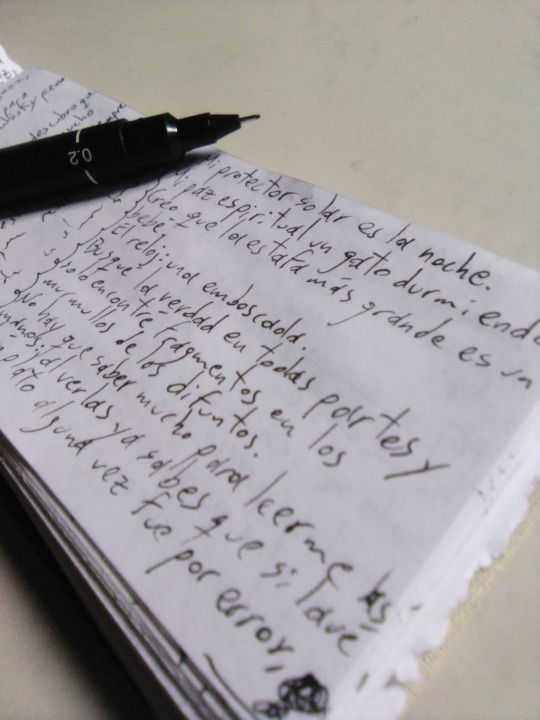 0.2
descubro q
Mi protector solar es la noche.
Mi paz espiritual un gato durmiendo
Creo que la estafa más grande es un
bebé.
El reloj, una emboscada.
Busqué la verdad en todas partes y
solo encontré fragmentos en los
murmullos de los difuntos.
No hay que saber mucho para leerme las
manos, al verlas ya sabes que si lavé
un plato alguna vez fue por error,